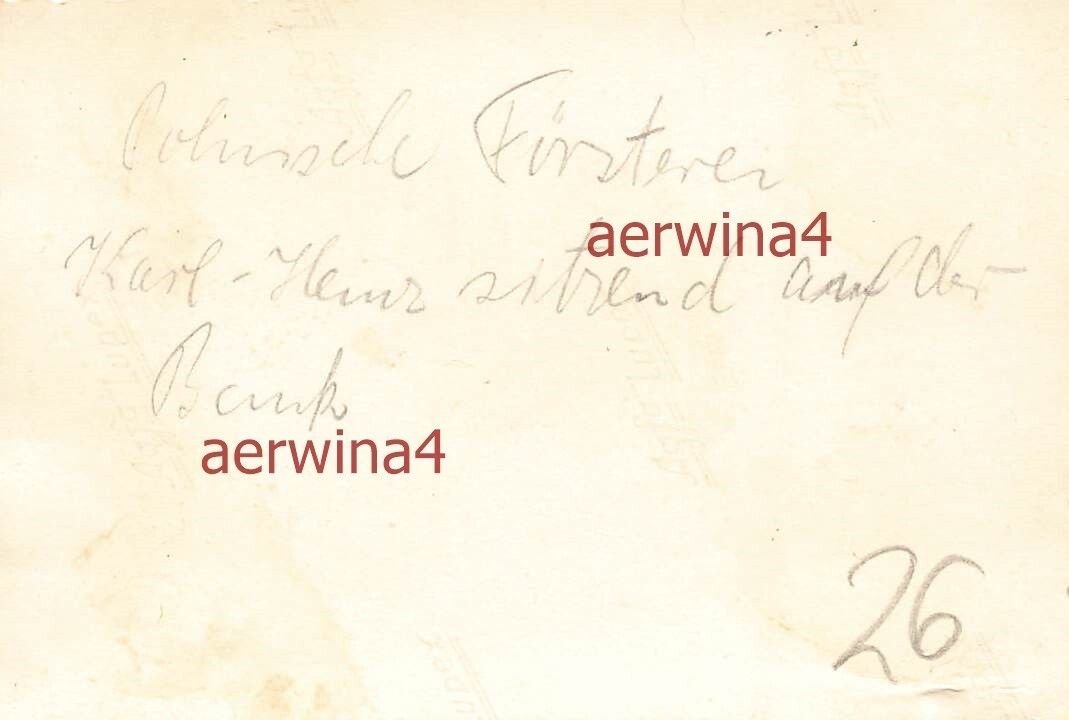 Polnische Försterei
aerwina4
Karl-Heinz sitzend auf der
Bank
aerwina4
26